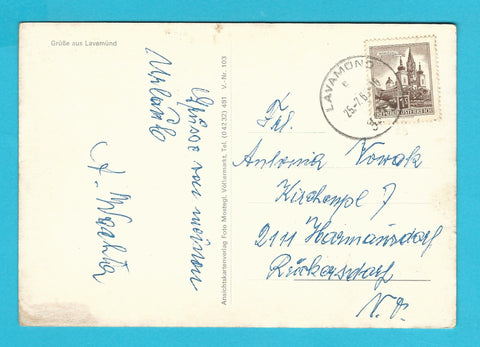 Grüße aus Lavamünd
Grüsse von meinem
Urlaub
A.
Ansichtskartenverlag Foto Montegl, Völkermarkt, Tel. (042 32) 491 V.-Nr. 103
LAVAMÜND
Frl.
Antonia Nowak
Kirchenpl 7
2111 Harmannsdorf
Rückersdorf
N. Ö.